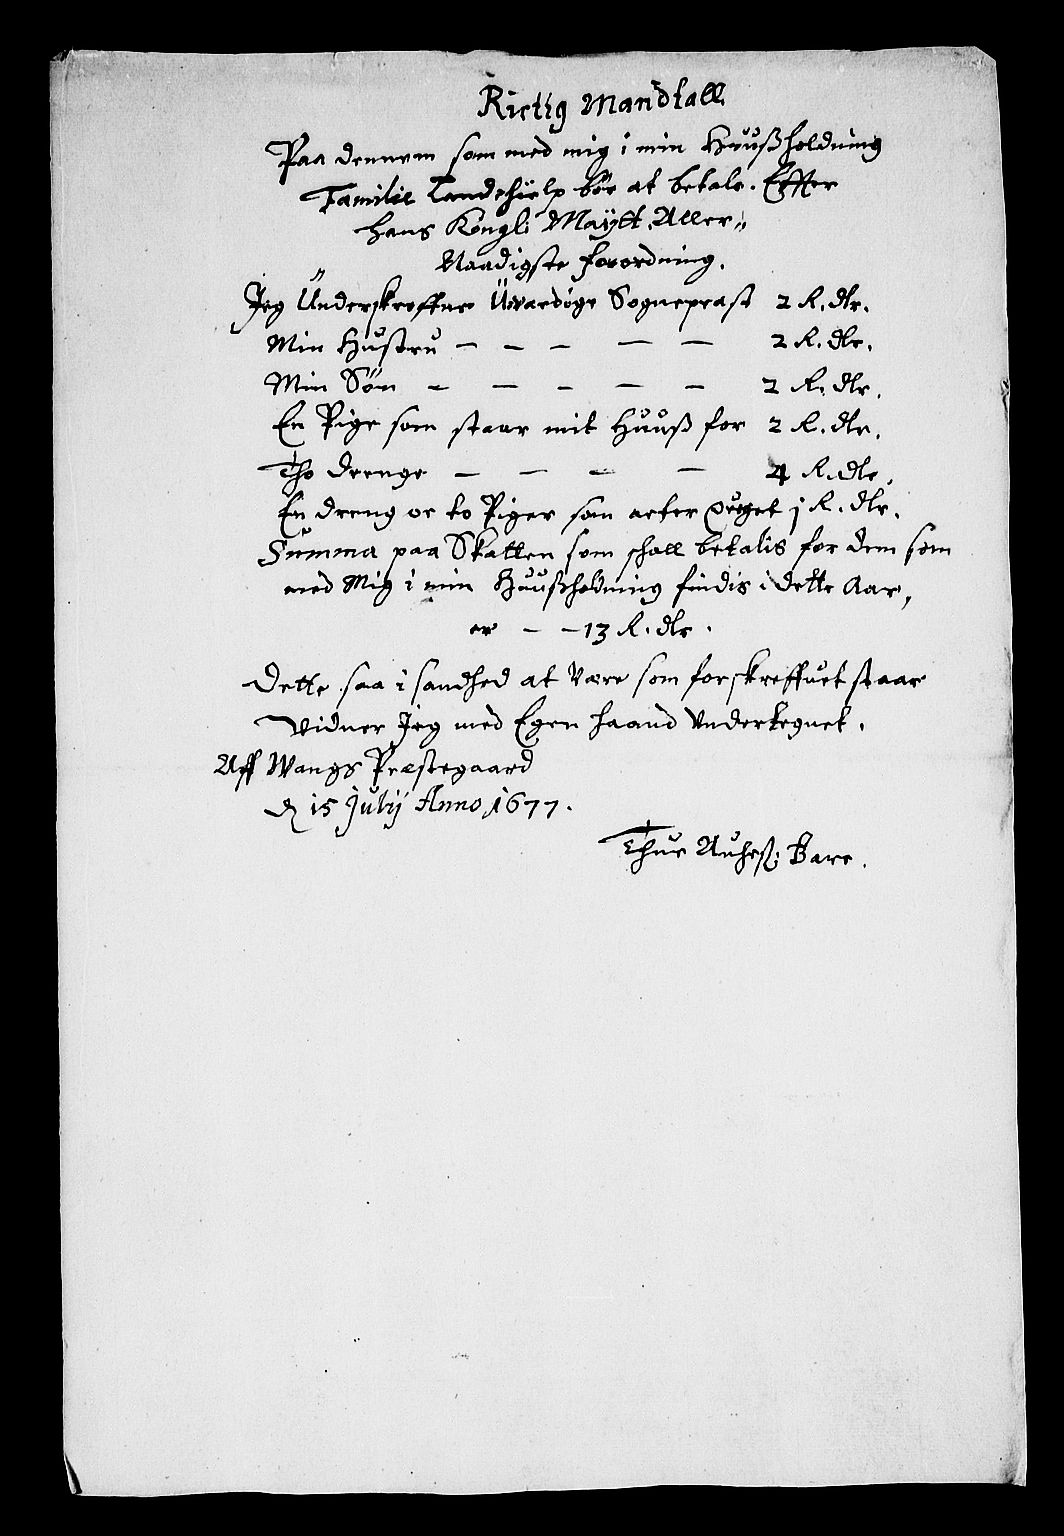 Rictig Mandtall
Paa dennem som med mig i min Huußholdning
Familie Landehielp bør at betale. Effter
hans Kongli Maÿtt. Aller„
Naadigste forordning.
Jeg Underskreffne Uværdige Sogneprest 2 R. dlr.
Min Hustru — — — — — 2 R. dlr.
Min Søn — — — — — 2 R. dlr.
En Pige som staar mit Huuß for 2 R. dlr.
Tho drenge — — — — 4 R. dlr.
En dreng oc to Piger som acter qveget j R. dlr.
Summa paa Skatten som schall betalis for dem som
med Mig i min Huußholdning findis i dette Aar,
er — — 13 R. dlr.
Dette saa i sandhed at være som forskreffuet staar
Vidner Jeg med Egen haand Undertegnet.
Aff Wangs Præstegaard
d 15 Julij Anno 1677.
Thue Bare.